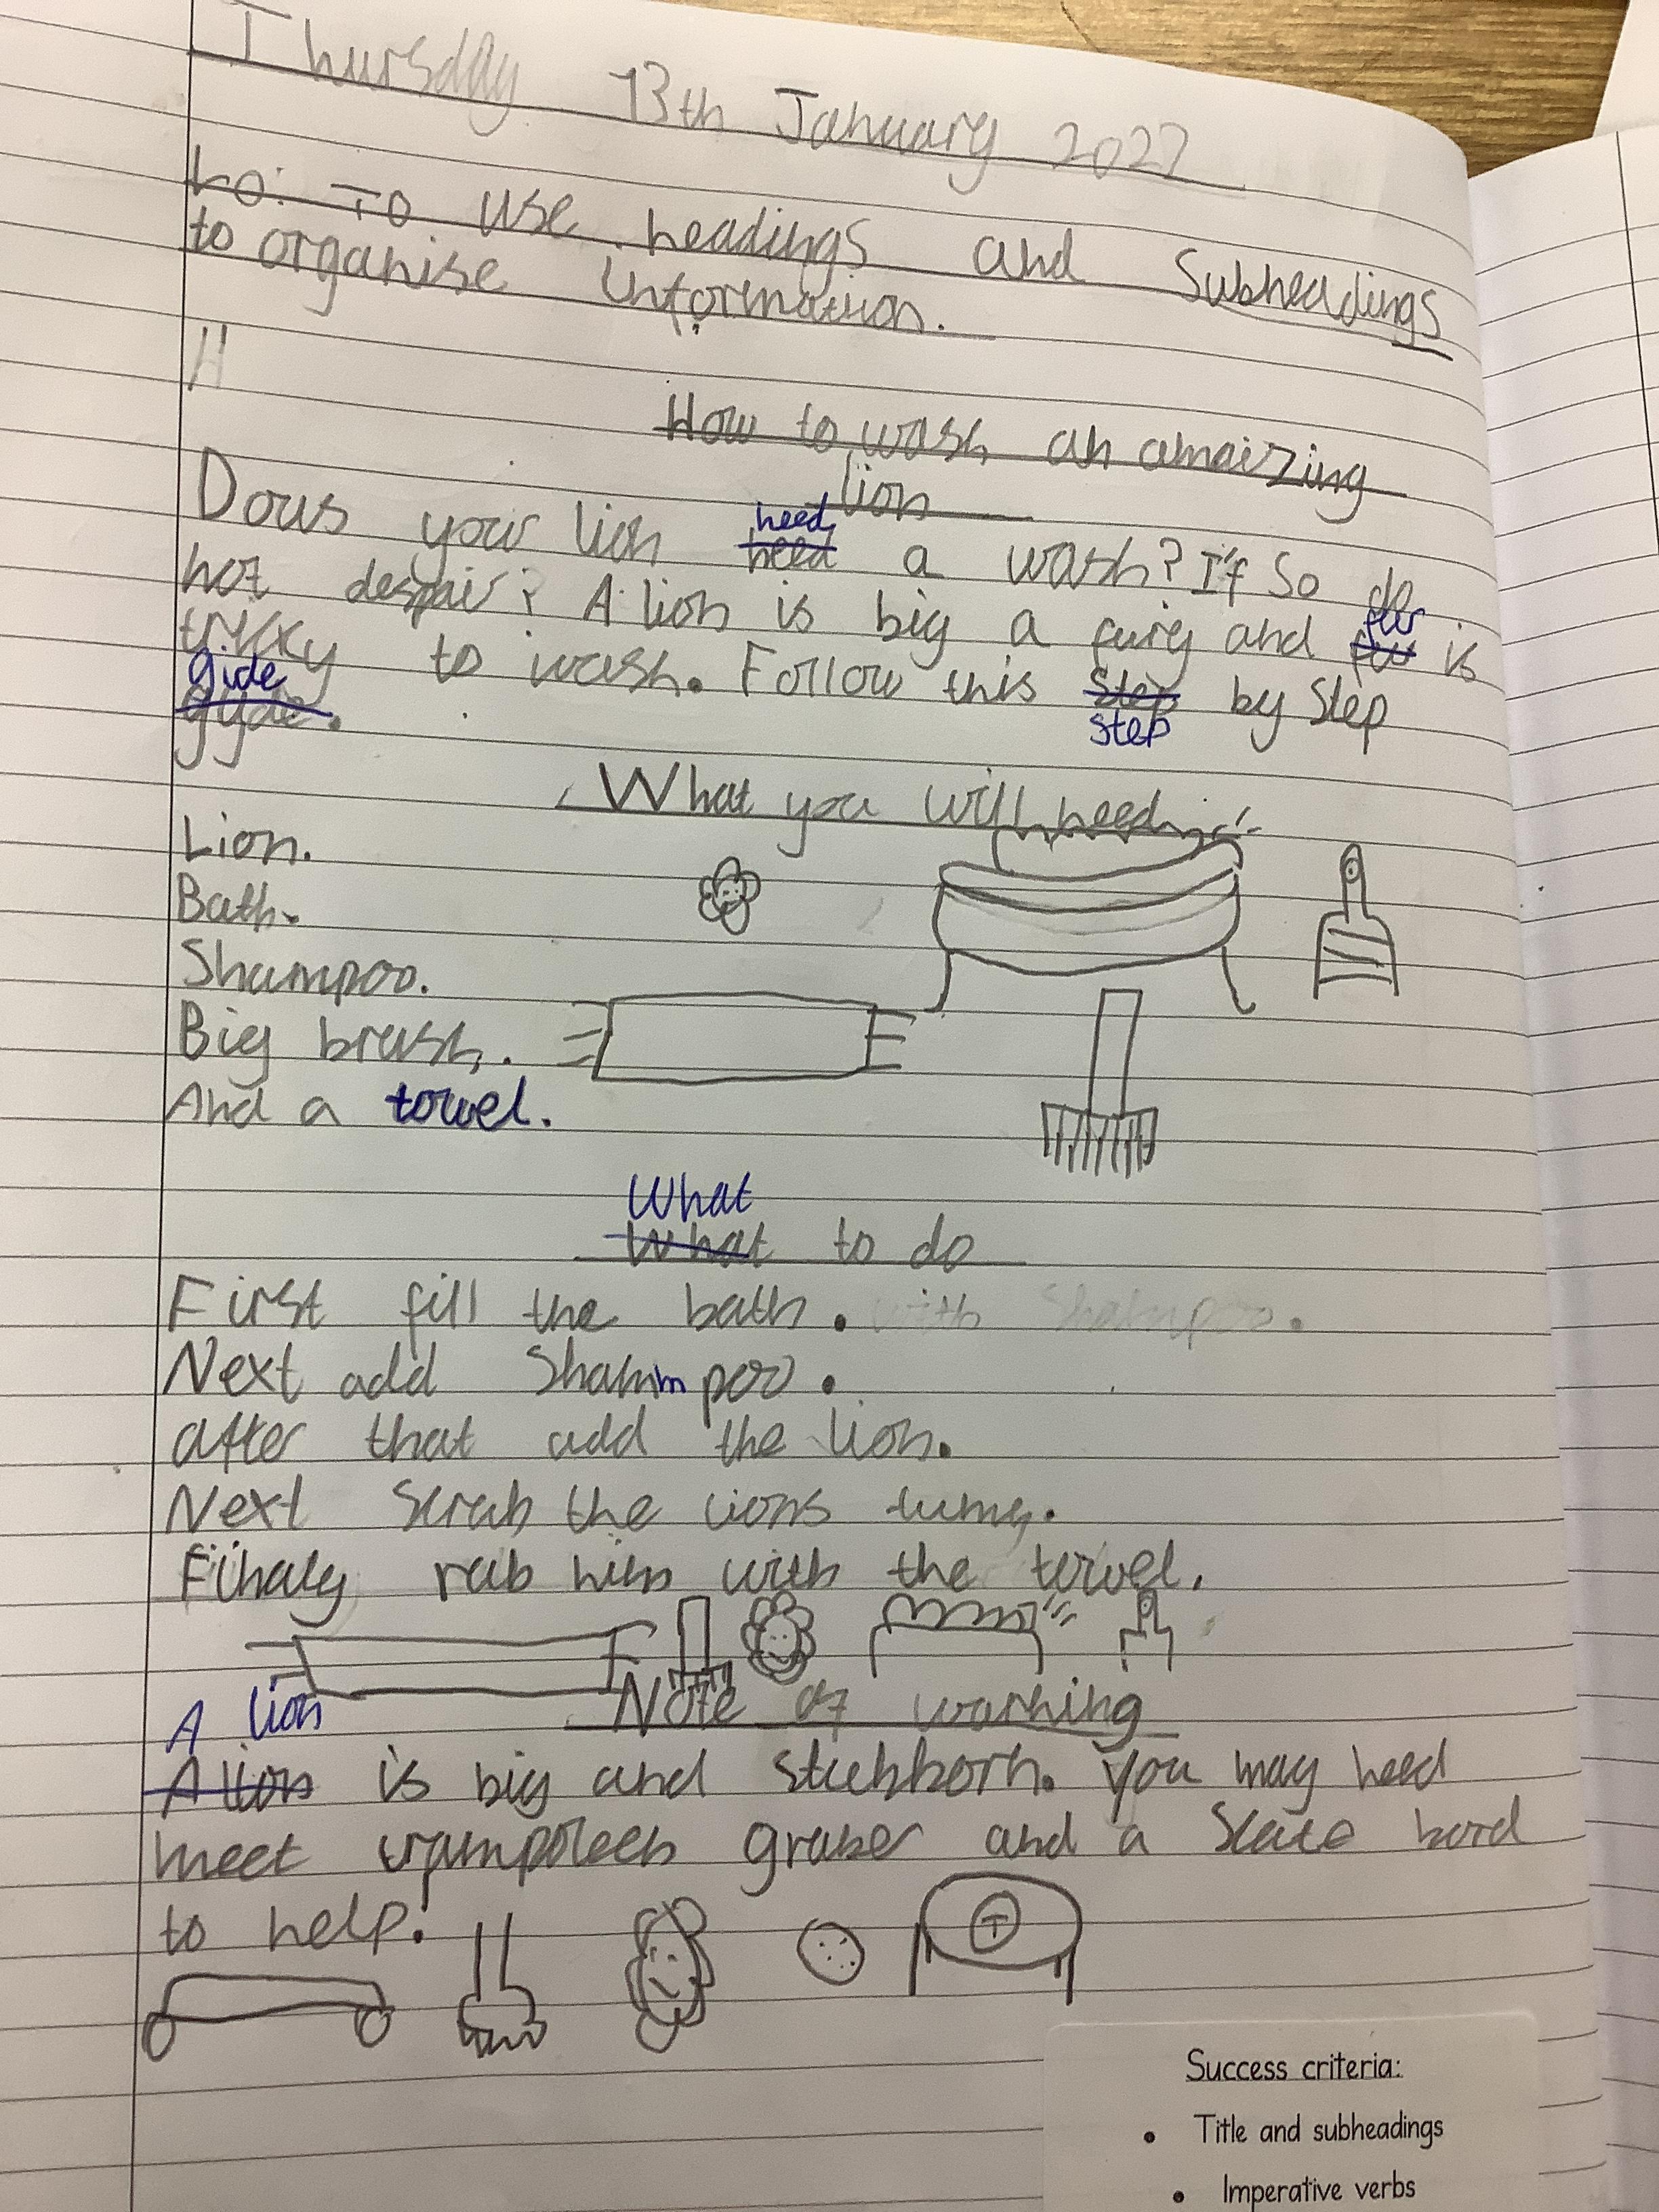 Thursday 13th January 2022
Lo: To use headings and Subheadings
to organise information.
H
How to wash an amaizing
lion
Dous your lion need need a wash? If So do
not despair? A lion is big a furry and is
trikky to wash. Follow this Step by Step
gide gyde. step
What you will need
Lion.
Bath.
Shampoo.
Big brush.
And a towel.
What
What to do
First fill the bath. with Shampoo.
Next add Shammpoo.
after that add the lion.
Next scrub the lions tumy.
Finaly rub him with the towel.
A lion
Note of warning
A lion is big and stubborn. You may need
meet trampoleen graber and a Scate bord
to help!
T
Success criteria:
• Title and subheadings
• Imperative verbs